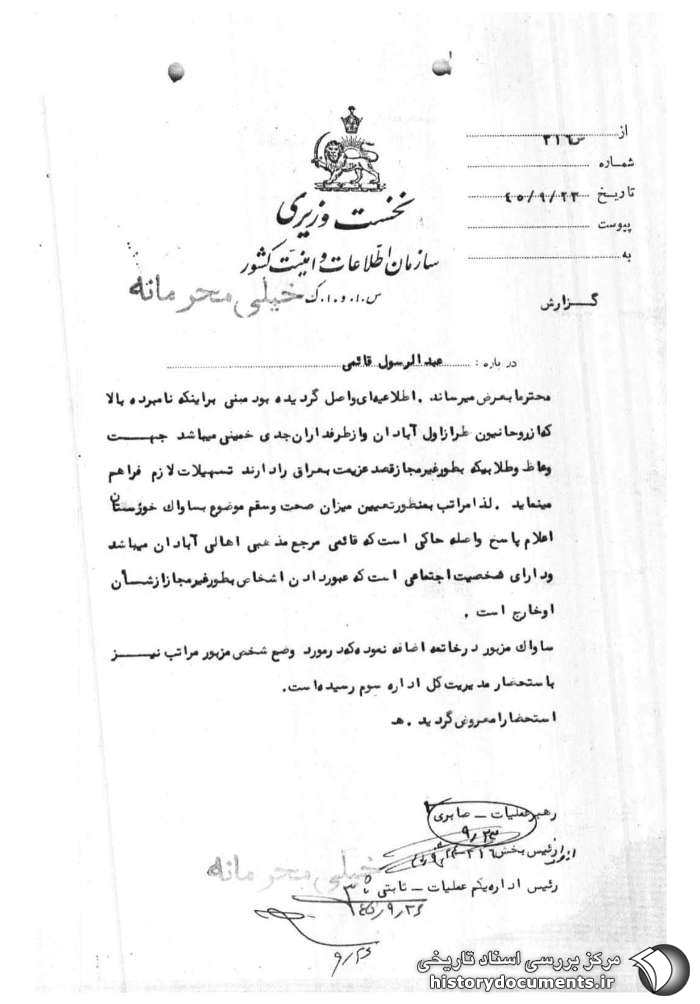 از ... س۳۱٦
شماره
تاریخ ٤٥/۹/۲۳
پیوست
به
نخست وزیری
سازمان اطلاعات و امنیت کشور
س.ا.و.ا.ک
خیلی محرمانه
گزارش
درباره : عبدالرسول قائمی
محترما بعرض میرساند . اطلاعیه‌ای واصل گردیده بود مبنی براینکه نامبرده بالا
که از روحانیون طراز اول آبادان و از طرفداران جدی خمینی میباشد جهت
وعاظ و طلابیکه بطور غیر مجاز قصد عزیمت بعراق را دارند تسهیلات لازم فراهم
مینماید . لذا مراتب بمنظور تعیین میزان صحت و سقم موضوع بساواک خوزستان
اعلام پاسخ واصله حاکی است که قائمی مرجع مذهبی اهالی آبادان میباشد
و دارای شخصیت اجتماعی است که عبور دادن اشخاص بطور غیر مجاز از شأن
او خارج است .
ساواک مزبور در خاتمه اضافه نموده که در مورد وضع شخص مزبور مراتب نیز
باستحضار مدیریت کل اداره سوم رسیده است.
استحضارا معروض گردید . هـ
رهبر عملیات ــ صابری
۹/۲۳
رئیس بخش ۳۱٦
رئیس اداره یکم عملیات ــ ثابتی
٤٥/۹/۲٦
خیلی محرمانه
۹/۲٦
مرکز بررسی اسناد تاریخی
historydocuments.ir